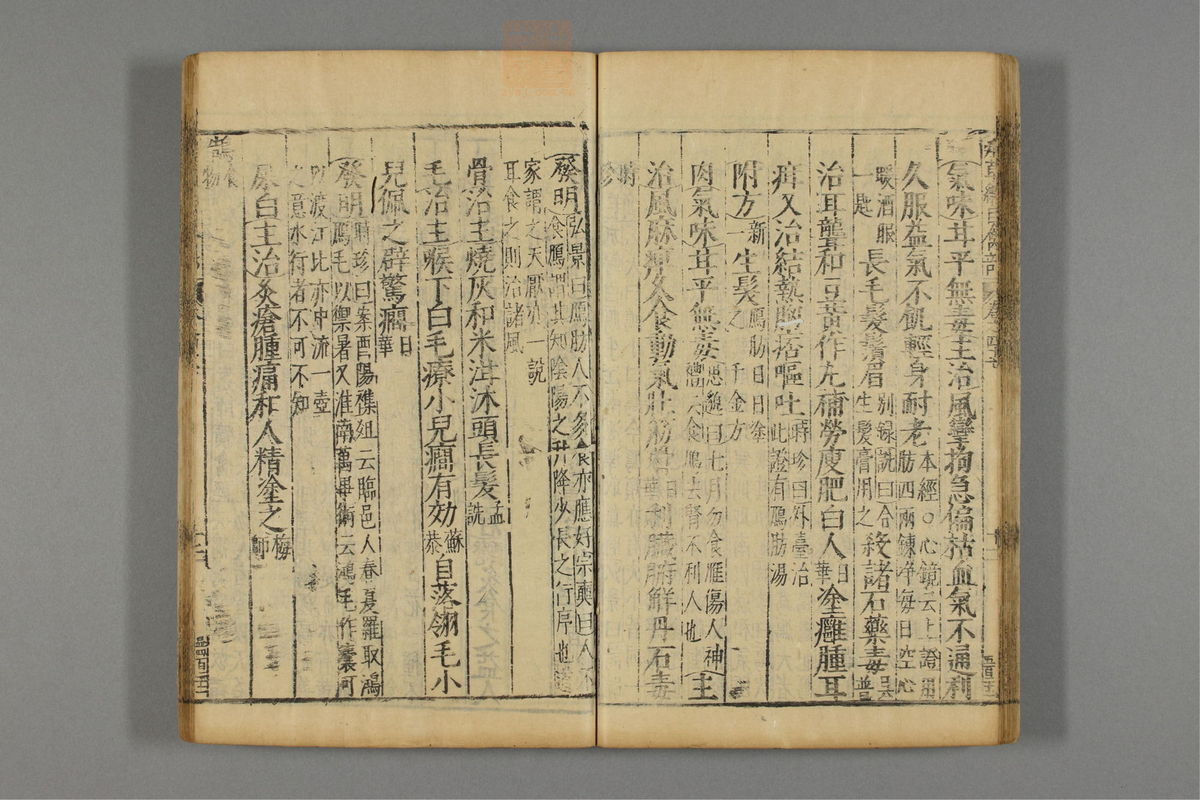 氣味甘平無毒主治風攣拘急偏枯血氣不通利
久服益氣不飢輕身耐老本經○心鏡云上證用肪四兩鍊净每日空心
暖酒服一匙長毛髮鬚眉別録詵曰合生髮膏用之殺諸石藥毒吳普
治耳聾和豆黃作丸補勞瘦肥白人日華塗癰腫耳
疳又治結熱胸痞嘔吐時珍曰外臺治此證有鴈肪湯
附方新一生髮鴈肪日日塗之千金方
肉氣味甘平無毒思邈曰七月勿食雁傷人神禮云食鴈去腎不利人也主
治風麻痺久食動氣壯筋骨日華利臟腑解丹石毒
時珍
發明弘景曰鴈肪人不多食亦應好宗奭曰人不食鴈謂其知陰陽之升降少長之行序也道
家謂之天厭亦一說耳食之則治諸風
骨治主燒灰和米泔沐頭長髮孟詵
毛治主喉下白毛療小兒癇有効蘇恭自落翎毛小
兒佩之辟驚癇日華
發明時珍曰案酉陽襍俎云臨邑人春夏羅取鴻鴈毛以禦暑又淮南萬畢術云鴻毛作囊可
以渡江比亦中流一壺之意水行者不可不知
屎白主治灸瘡腫痛和人精塗之梅師
鵠食物